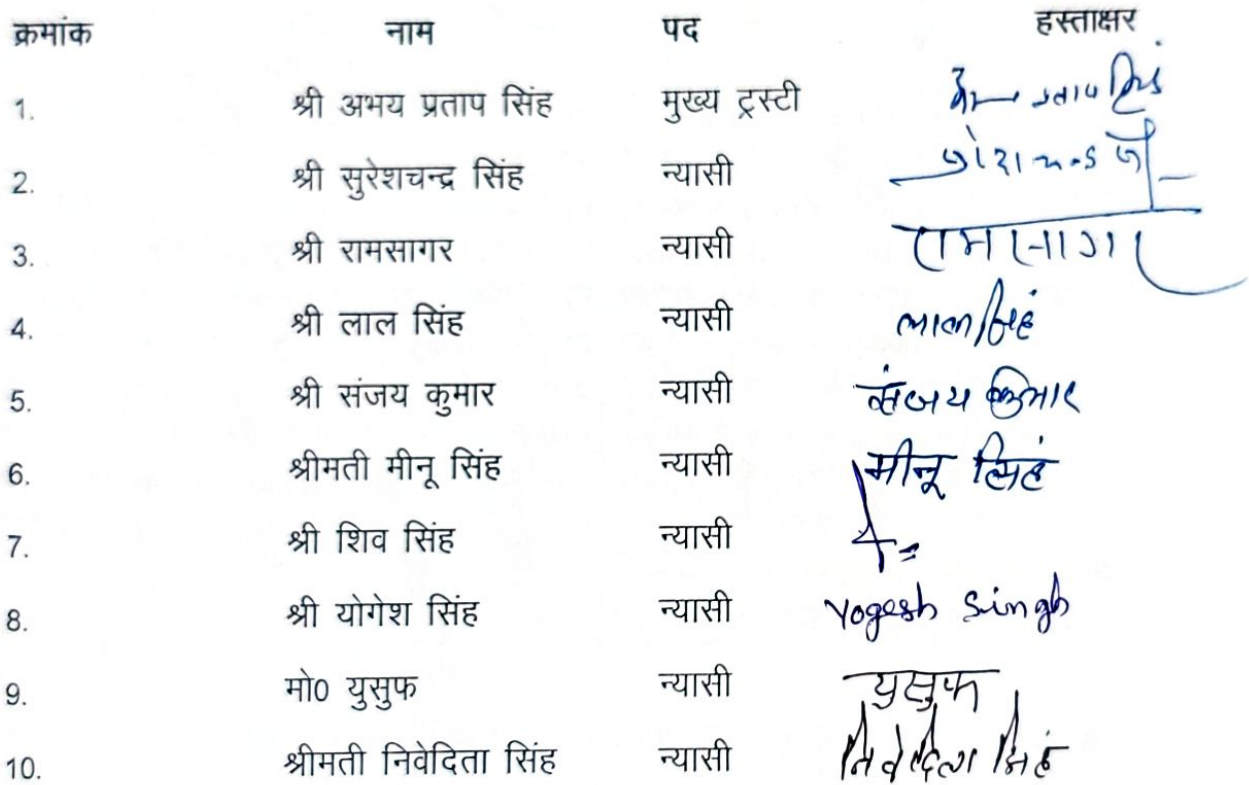 क्रमांक नाम पद हस्ताक्षर
1. श्री अभय प्रताप सिंह मुख्य ट्रस्टी प्रताप सिंह
2. श्री सुरेशचन्द्र सिंह न्यासी
3. श्री रामसागर न्यासी रामसागर
4. श्री लाल सिंह न्यासी लाल सिंह
5. श्री संजय कुमार न्यासी संजय कुमार
6. श्रीमती मीनू सिंह न्यासी मीनू सिंह
7. श्री शिव सिंह न्यासी
8. श्री योगेश सिंह न्यासी Yogesh Singh
9. मो0 युसुफ न्यासी युसुफ
10. श्रीमती निवेदिता सिंह न्यासी निवेदिता सिंह